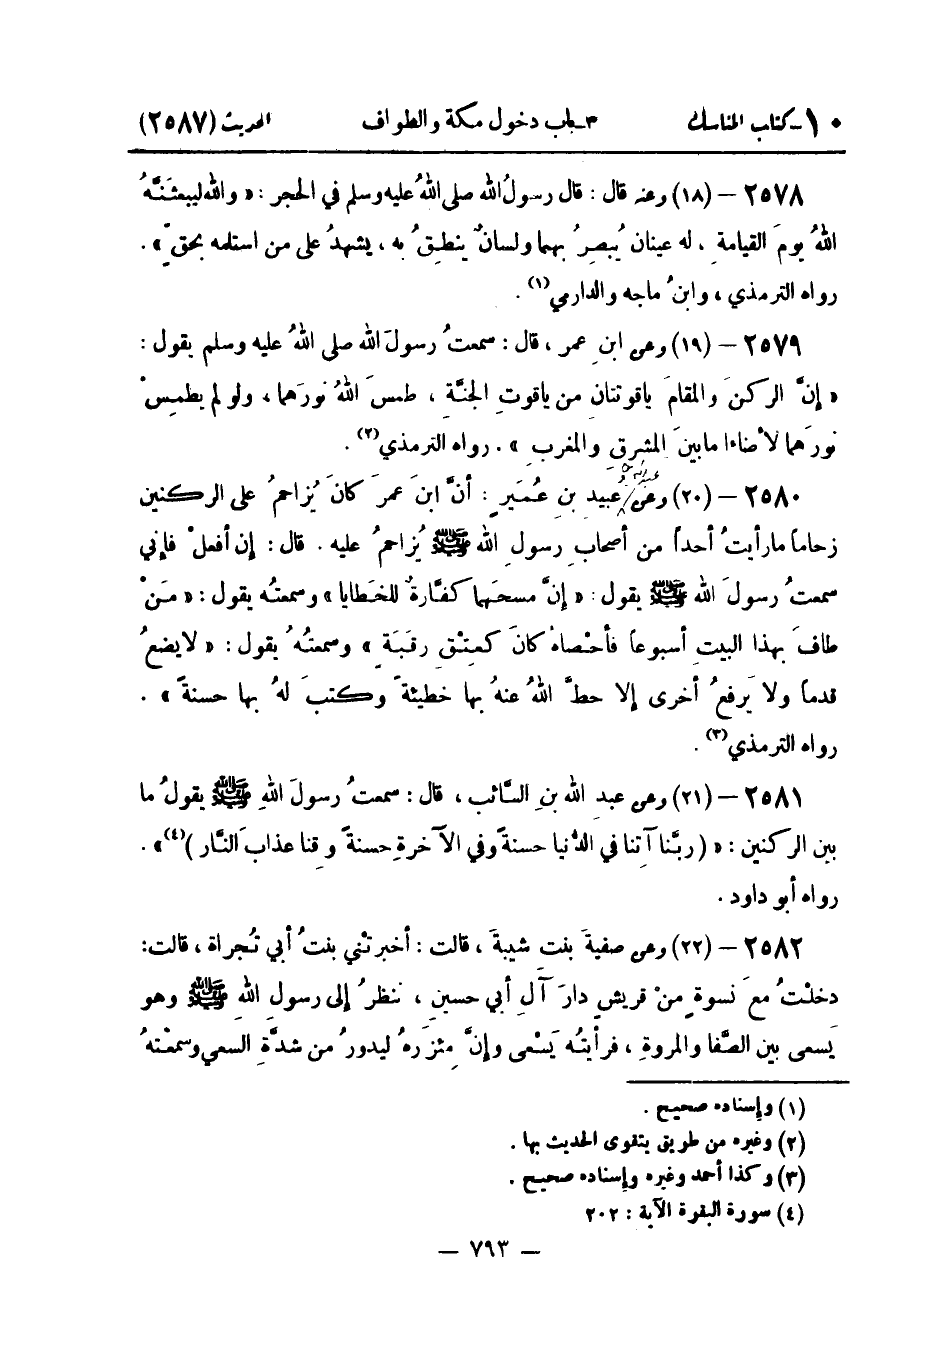 ١٠ـ كتاب المناسك ٣ـ باب دخول مكة والطواف الحديث (٢٥٨٧)
٢٥٧٨ – (١٨) وعنه قال : قال رسولُ الله صلى اللهُ عليه وسلم في الحجر : « والله ليبعثَنَّهُ
اللهُ يومَ القيامةِ ، له عينان يُبصِرُ بهما ولسانٌ ينطِقُ به ، يشهدُ على من استلمه بحقٍّ » .
رواه الترمذي ، وابنُ ماجه والدارمي(١) .
٢٥٧٩ – (١٩) وعن ابنِ عمر ، قال : سمعتُ رسولَ الله صلى اللهُ عليه وسلم يقول :
« إنَّ الركنَ والمقامَ ياقوتتانِ من ياقوتِ الجنَّةِ ، طمسَ اللهُ نورَهما ، ولو لم يطمِسْ
نورَهما لأضاءا ما بينَ المشرقِ والمغربِ » . رواه الترمذي(٢) .
٢٥٨٠ – (٢٠) وعن عبيدِ بنِ عُمَيرٍ : أنَّ ابنَ عمرَ كانَ يُزاحمُ على الركنين
زحاماً ما رأيتُ أحداً من أصحابِ رسولِ الله ﷺ يُزاحمُ عليه . قال : إن أفعلْ فإني
سمعتُ رسولَ الله ﷺ يقول : « إنَّ مسحَهما كفَّارةٌ للخَطايا » وسمعتُه يقول : « مَنْ
طافَ بهذا البيتِ أسبوعاً فأحْصاهُ كانَ كعِتْقِ رقَبَةٍ » وسمعتُهُ يقول : « لا يضعُ
قدماً ولا يَرفعُ أخرى إلا حطَّ اللهُ عنهُ بها خطيئةً وكتبَ لهُ بها حسنةً » .
رواه الترمذي(٣) .
٢٥٨١ – (٢١) وعن عبدِ الله بنِ السَّائب ، قال : سمعتُ رسولَ اللهِ ﷺ يقولُ ما
بين الركنين : « ( ربَّنا آتِنا في الدُّنيا حسنةً وفي الآخرةِ حسنةً وقِنا عذابَ النَّار )(٤)» .
رواه أبو داود .
٢٥٨٢ – (٢٢) وعن صفيةَ بنتِ شيبةَ ، قالت : أخبرتْني بنتُ أبي تُجراة ، قالت:
دخلْتُ معَ نسوةٍ مِنْ قريشٍ دارَ آلِ أبي حسينٍ ، ننظرُ إلى رسولِ اللهِ ﷺ وهو
يَسعى بين الصَّفا والمروةِ ، فرأيتُه يَسْعى وإنَّ مِئزَرهُ ليدورُ من شدَّةِ السعي وسمعْتهُ
(١) وإسناده صحيح .
(٢) وغيره من طريق يتقوى الحديث بها .
(٣) وكذا أحمد وغيره وإسناده صحيح .
(٤) سورة البقرة الآية : ٢٠٢
— ٧٩٣ —